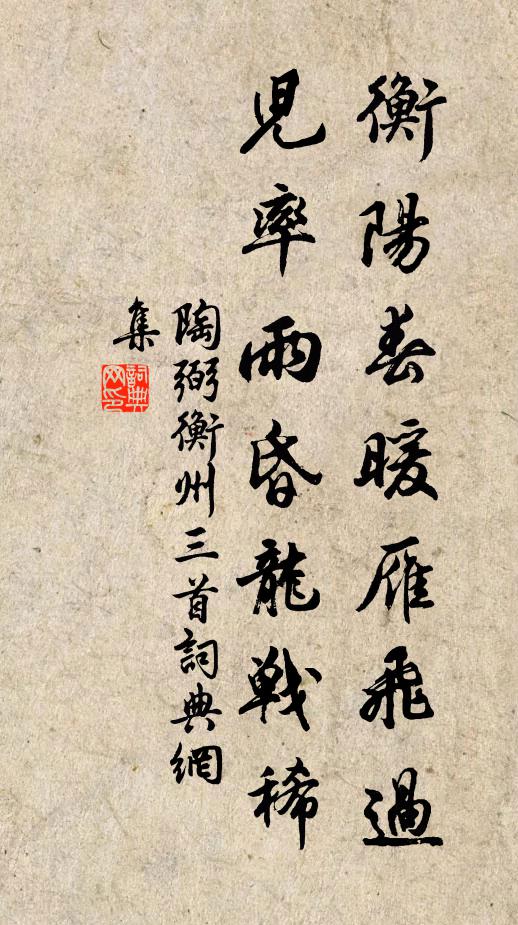 衡陽春暖雁飛過
兕率雨昏龍戰稀
陶弼衡州三首詞典網
集
詞典
网印